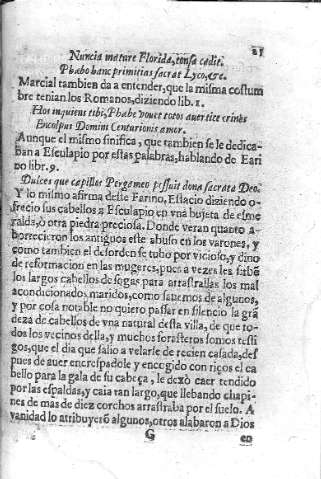 21
Nuncia mature Florida, tonsa cedit.
Phæbo hanc primitias sacrat Lyco, &c.
Marcial tambien da a entender, que la misma costum
bre tenian los Romanos, diziendo lib. 1.
Hos inquiens tibi, Phæbe vouet totos a vertice crines
Encolpus Domini Centurionis amor.
Aunque el mismo sinifica, que tambien se le dedica-
ban a Esculapio por estas palabras, hablando de Eari
no libr. 9.
Dulces que capillos Pergameo possuit dona sacrata Deo.
Y lo mismo afirma deste Earino, Estacio diziendo o-
frecio sus cabellos a Esculapio en vna bujeta de esme
ralda, ò otra piedra preciosa. Donde veran quanto a-
borrecieron los antiguos este abuso en los varones, y
como tambien el desorden se tubo por vicioso, y dino
de reformacion en las mugeres, pues a vezes les sirbẽ
los largos cabellos de sogas para arrastrallas los mal
acondicionados maridos, como sauemos de algunos,
y por cosa notable no quiero passar en silencio la grã
deza de cabellos de vna natural desta villa, de que to-
dos los vecinos della, y muchos forasteros somos testi
gos, que el dia que salio a velarse de recien casada, des
pues de auer encrespadole y encogido con riços el ca
bello para la gala de su cabeça, le dexò caer tendido
por las espaldas, y caia tan largo, que llebando chapi-
nes de mas de diez corchos arrastraba por el suelo. A
vanidad lo atribuyerõ algunos, otros alabaron a Dios
G
en